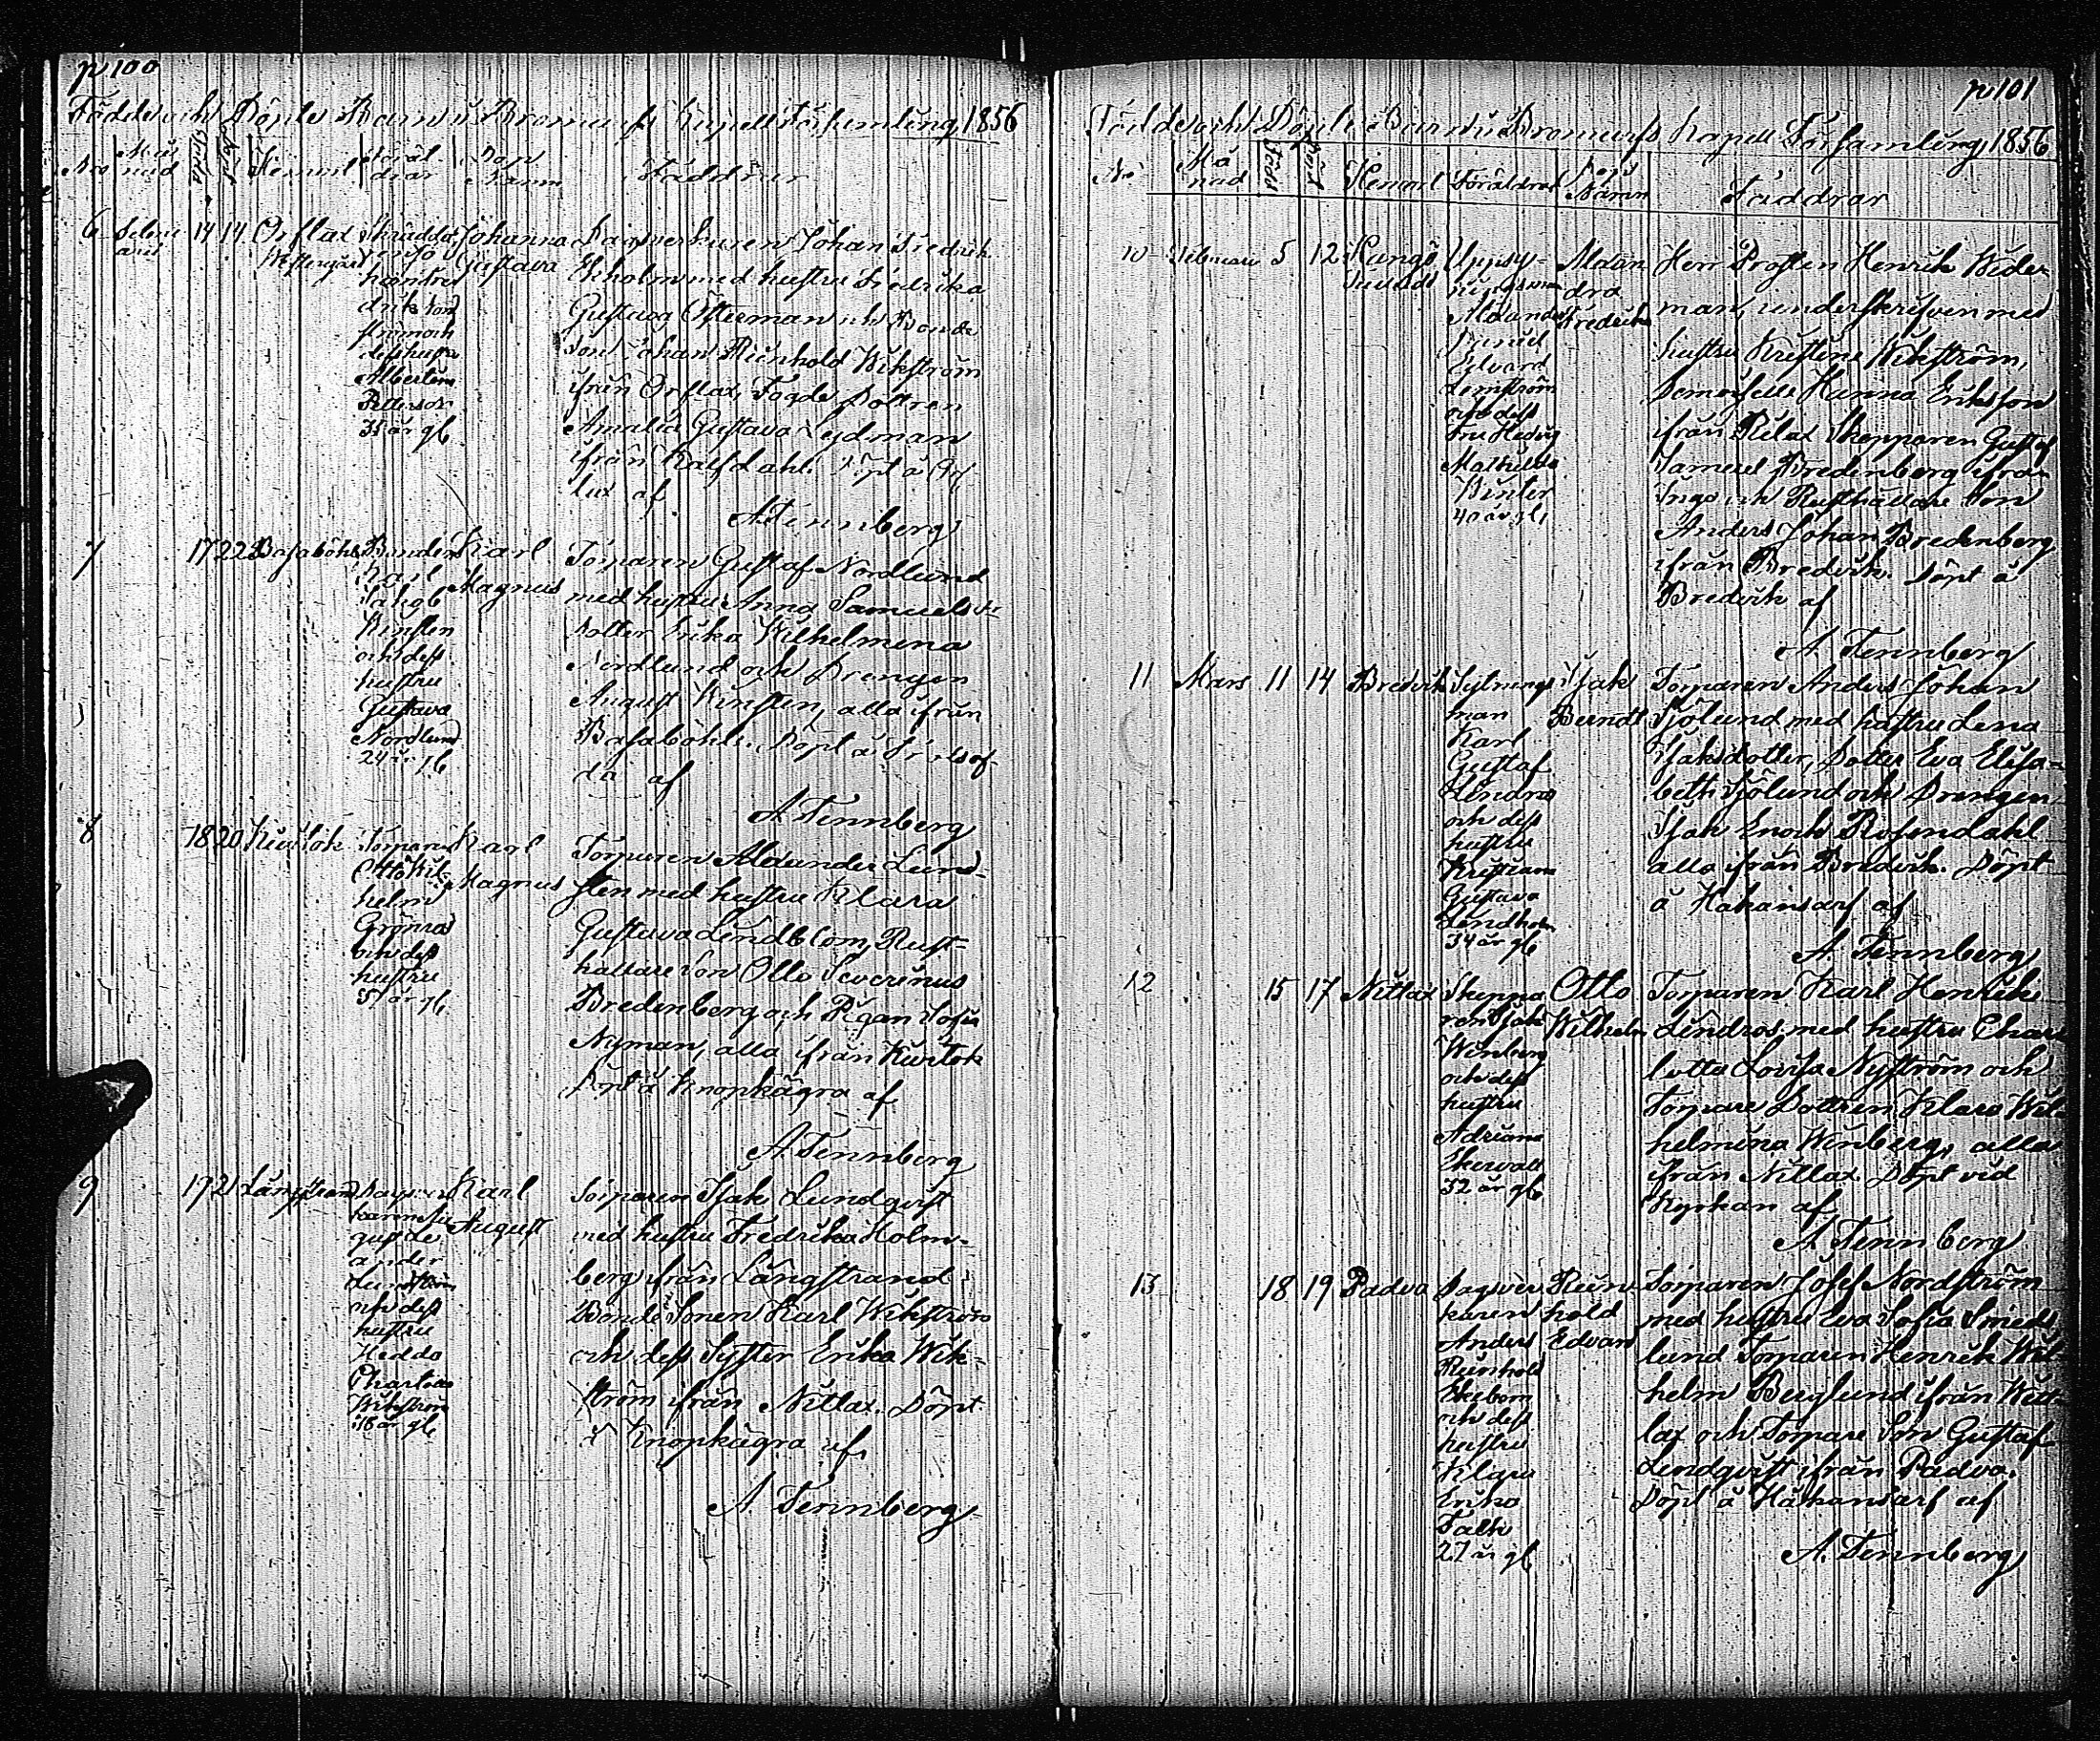 p 100
Födde och Döpte Barn i Bromarfs Kapell Församling 1856
No Månad Född Döpt Hemman Föräldrar Dop Namn Faddrar
6 Februari 14 14 Orslax Westergård
Johanna Gustava
handren
och
Albertina
Pettersson
35 år gl
Dagsverkaren Johan Fredrik
Ekholm med hustru Fredrika
Gustava Österman och Bonde
Son Johan Reinhold Wikström
ifrån Orslax, Fogde Dottren
Amalia Gustava Lydman
ifrån Kalfdahl. Döpt å Ors
lax af
A. Tennberg
7 17 22 Basaböhle
Bonden
Karl
Jakob
Winsten
och dess
hustru
Gustava
Nordlund
24 år gl
Karl
Magnus
Torparen Gustaf Nordlund
med hustru Anna Samuels
Dotter Erika Wilhelmina
Nordlund och Drengen
August Winsten, alla ifrån
Basaböhle. Döpt å
af
A. Tennberg
8 18 20
Torparen
Otto Wil-
helm
Grönroos
och dess
hustru
37 år gl
Karl
Magnus
Torparen Alexander Lund-
sten med hustru Klara
Gustava Lindblom, Rust-
hållare Son Otto Severinus
Bredenberg och Pigan Sofia
Nyman, alla ifrån
Döpt å Knopkägra af
A. Tennberg
9 17 21 Långstrand
Dagsver
karen Au
gust
ander
Lundström
och dess
hustru
Hedda
Charlotta
Wikström
18 år gl
Karl
August
Torparen Isak Lundqvist
med hustru Fredrika Holm-
berg ifrån Långstrand
Bonde Sonen Karl Wikström
och dess Syster Erika Wik-
ström ifrån Nitlax. Döpt
å Knopkägra af
A. Tennberg
p 101
Födde och Döpte Barn i Bromarfs Kapell Församling 1856
No Månad Född Döpt Hemman Föräldrar Dops Namn Faddrar
10 Februari 5 12 Hangö
Uppsy-
ningsman
Alexander
Daniel
Edvard
Lemström
och dess
Fru Hedvig
Mathilda
Winter
40 år gl
Alexan
dra
Fredrika
Herr Prosten Henrik Wider
man, underskrifven med
hustru Kristina Wikström,
Demoiselle Hanna Eriksson
ifrån Rilax Skepparen Gustaf
Samuel Bredenberg ifrån
Ingö och Rusthållare Son
Anders Johan Bredenberg
ifrån Bredvik. Döpt å
Bredvik af
A. Tennberg
11 Mars 11 14 Bredvik
Sytnings
man
Karl
Gustaf
Lindroos
och dess
hustru
Kristiana
Gustava
Lindholm
34 år gl
Isak
Berndt
Torparen Anders Johan
Sjölund med hustru Lena
Isaksdotter, Dotter Eva Elisa-
beth Sjölund och Drengen
Isak Enoch Rosendahl
alla ifrån Bredvik. Döpt
å Håkansarf af
A. Tennberg
12 15 17 Nitlax
Skeppa
ren Isak
Winberg
och dess
hustru
Adriana
Ekervall
32 år gl
Otto
Wilhelm
Torparen Karl Henrik
Lindros med hustru Char
lotta Lovisa Nyström och
Torpare Dottren Klara Wil-
helmina Winberg, alla
ifrån Nitlax. Döpt vid
Kyrkan af
A. Tennberg
13 18 19 Padva
Dagsver
karen
Anders
Reinhold
Ekeborg
och dess
hustru
Klara
Erika
Falk
27 år gl
Rein-
hold
Edvard
Torparen Josef Nordström
med hustru Eva Sofia Smeds
lund Torparen Henrik Wil-
helm Berglund ifrån Wätt-
lax och Torpare Son Gustaf
Lindqvist ifrån Padva.
Döpt å Håkansarf af
A. Tennberg